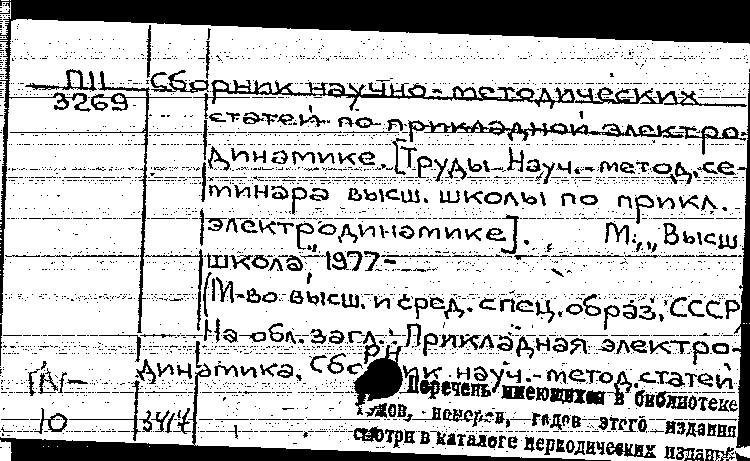 П11 Сборник научно-методических
3269
статей по прикладной электро-
динамике. [Труды Науч.-метод. се-
минара высш. школы по прикл.
электродинамике]. М., „Высш.
школа", 1977-
(М-во высш. и сред. спец. образ. СССР)
На обл. загл.: Прикладная электро-
динамика. Сборник науч.-метод. статей
10 3414
Перечень имеющихся в библиотеке
томов, номеров, годов этого издания
смотри в каталоге периодических изданий